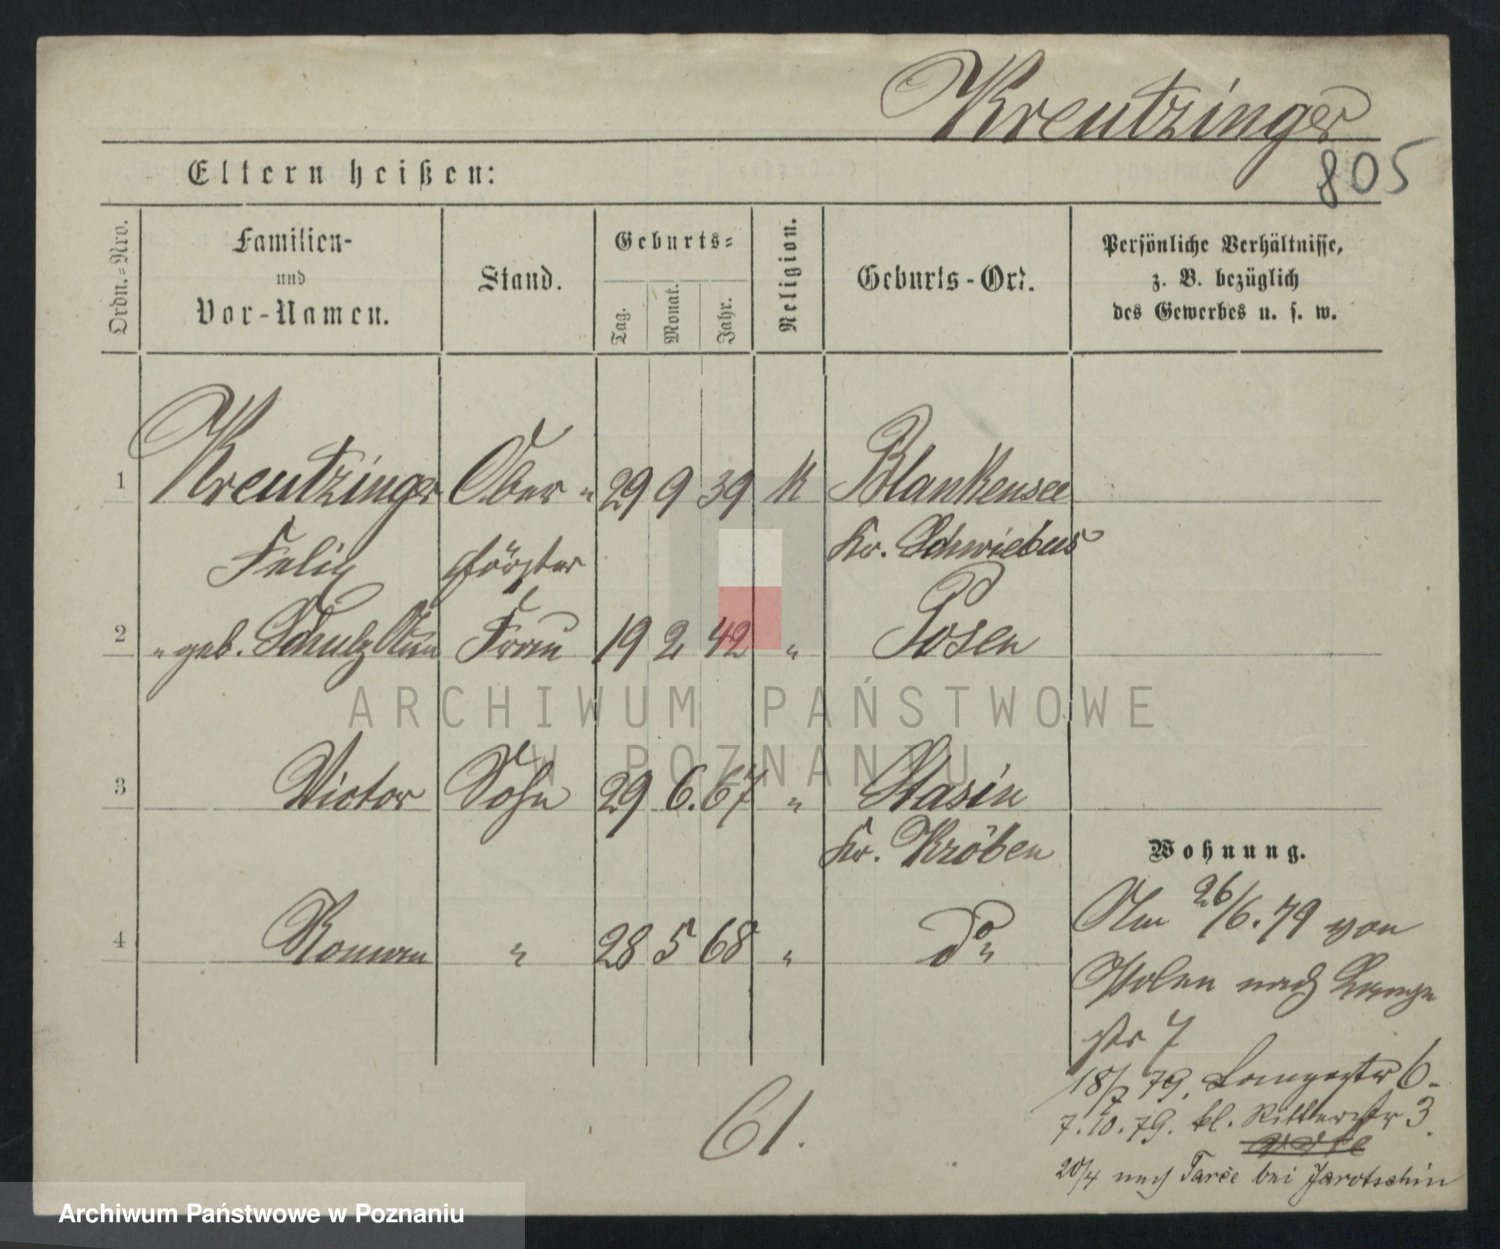 Kreutzinger
805
Eltern heißen:
Ordn.=Nro.
Familien-
und
Vor-Namen.
Stand.
Geburts=
Tag.
Monat.
Jahr.
Religion.
Geburts-Ort.
Persönliche Verhältnisse,
z. B. bezüglich
des Gewerbes u. s. w.
1 Kreutzinger Ober- 29 9 39 K Blankensee
Felix förster Kr. Schwiebus
2 " geb. Schulz Frau 19 2 42 " Posen
ARCHIWUM PAŃSTWOWE
W POZNANIU
3 Victor Sohn 29 6. 67 " Stasin
Kr. Kröben
Wohnung.
4 Roman " 28 5 68 " do "
Am 26/6. 79 von
Polen nach Lange
str 7
18/7 79. Langestr 6.
7. 10. 79. kl. Ritterstr 3.
20/4 nach Tarce bei Jarotschin
61.
Archiwum Państwowe w Poznaniu